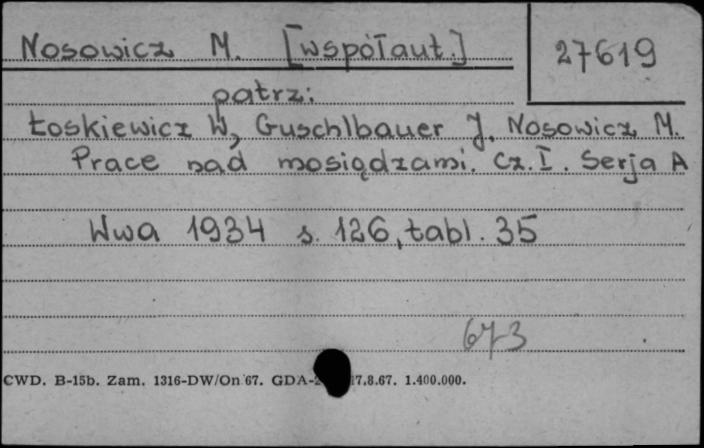 Nosowicz M. [współaut.]
27619
patrz:
Łoskiewicz W, Guschlbauer J. Nosowicz M.
Prace nad mosiądzami. Cz. I. Serja A
Wwa 1934 s. 126, tabl. 35
673
CWD. B-15b. Zam. 1316-DW/On 67. GDA- 17.8.67. 1.400.000.